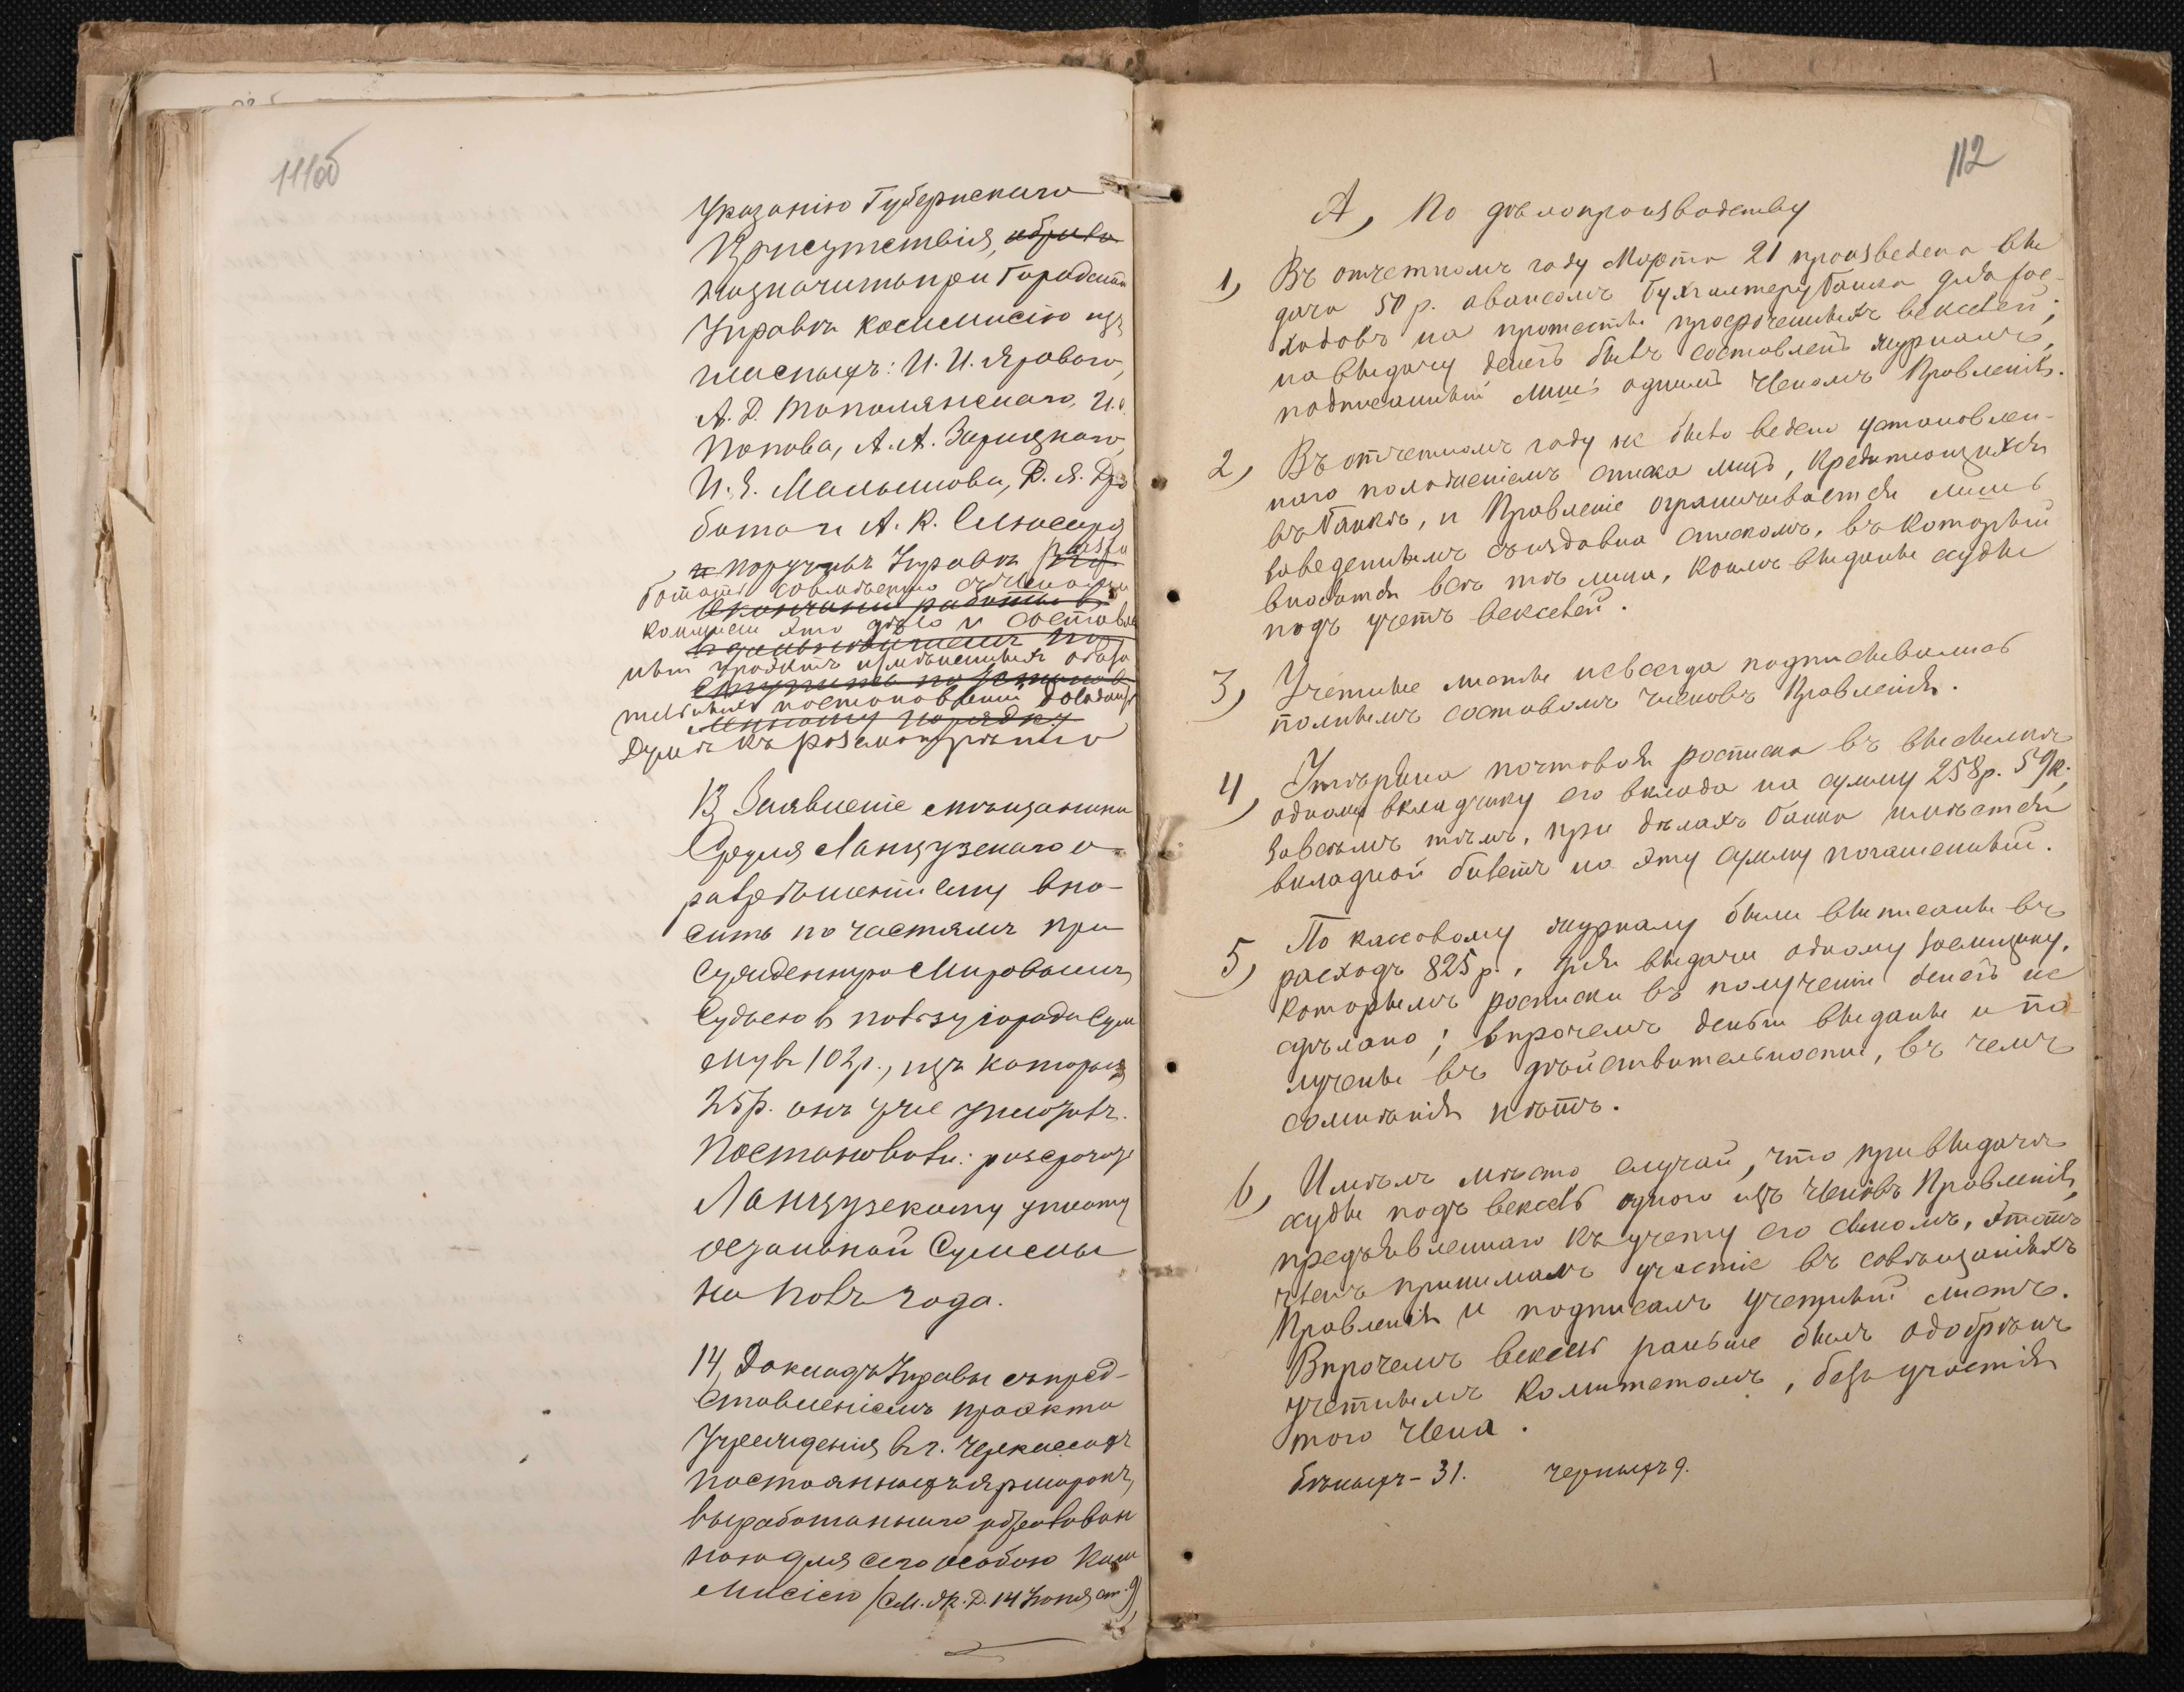 111об
Указанію Губернскаго
Присутствія,
назначить при Городской
Управѣ коммисію изъ
гласныхъ: И. И. Яроваго,
А. Д. Тополянскаго, И. С.
Попова, А. А. Зарицкаго,
И. Я. Малышова, Ф. Я. Дро
ботаго и А. К. Слюсаря
и поручивъ Управѣ разра
ботать совмѣстно съ членами
окончаніи работы
коммисіи это дѣло и составлен
ный проэктъ измѣненныхъ обяза
тельныхъ постановленій доложить
Думѣ къ разсмотрѣнію
13, Заявленіе мѣщанина
Сруля Ланцузскаго о
разрѣшеніи ему вно-
сить по частямъ при
сужденную Мировымъ
Судьею въ пользу города сум
му въ 102 р., изъ которыхъ
25 р. онъ уже уплотилъ.
Постановили: разсрочить
Ланцузскому уплату
остальной суммы
на полъ года.
14, Докладъ Управы съ пред-
ставленіемъ проэкта
Учрежденія въ г. Черкассахъ
постоянныхъ ярмарокъ,
выработаннаго образован
ною для сего особою Ком
мисіею /см. Ж. Д. 14 Іюня ст. 9/,
112
А, По дѣлопроизводству
1, Въ отчетномъ году Марта 21 произведена вы
дача 50 р. авансомъ бухгалтеру банка для рас-
ходовъ на протесты просроченныхъ векселей;
на выдачу денегъ былъ составленъ журналъ,
подписанный лишь однимъ Членомъ Правленія.
2, Въ отчетномъ году не было ведено установлен-
наго положеніемъ списка лицъ, кредитующихся
въ банкѣ, и Правленіе ограничивается лишь
заведеннымъ съиздавна спискомъ, въ который
вносятся всѣ тѣ лица, коимъ выданы ссуды
подъ учетъ векселей.
3, Учетные листы не всегда подписывались
полнымъ составомъ членовъ Правленія.
4, Утеряна почтовая росписка въ высылкѣ
одному вкладчику его вклада на сумму 258 р. 59 к.;
за всѣмъ тѣмъ, при дѣлахъ банка имѣется
вкладной билетъ на эту сумму погашенный.
5, По кассовому журналу были выписаны въ
расходъ 825 р., для выдачи одному заемщику,
которымъ росписки въ полученіи денегъ не
сдѣлано; впрочемъ деньги выданы и по-
лучены въ дѣйствительности, въ чемъ
сомнѣнія нѣтъ.
6, Имѣлъ мѣсто случай, что при выдачѣ
ссуды подъ вексель одного изъ членовъ Правленія,
предъявленнаго къ учету его сыномъ, этотъ
членъ принималъ участіе въ совѣщаніяхъ
Правленія и подписалъ учетный листъ.
Впрочемъ вексель раньше былъ одобренъ
учетнымъ комитетомъ, безъ участія
того члена.
бѣлыхъ - 31. черныхъ 9.